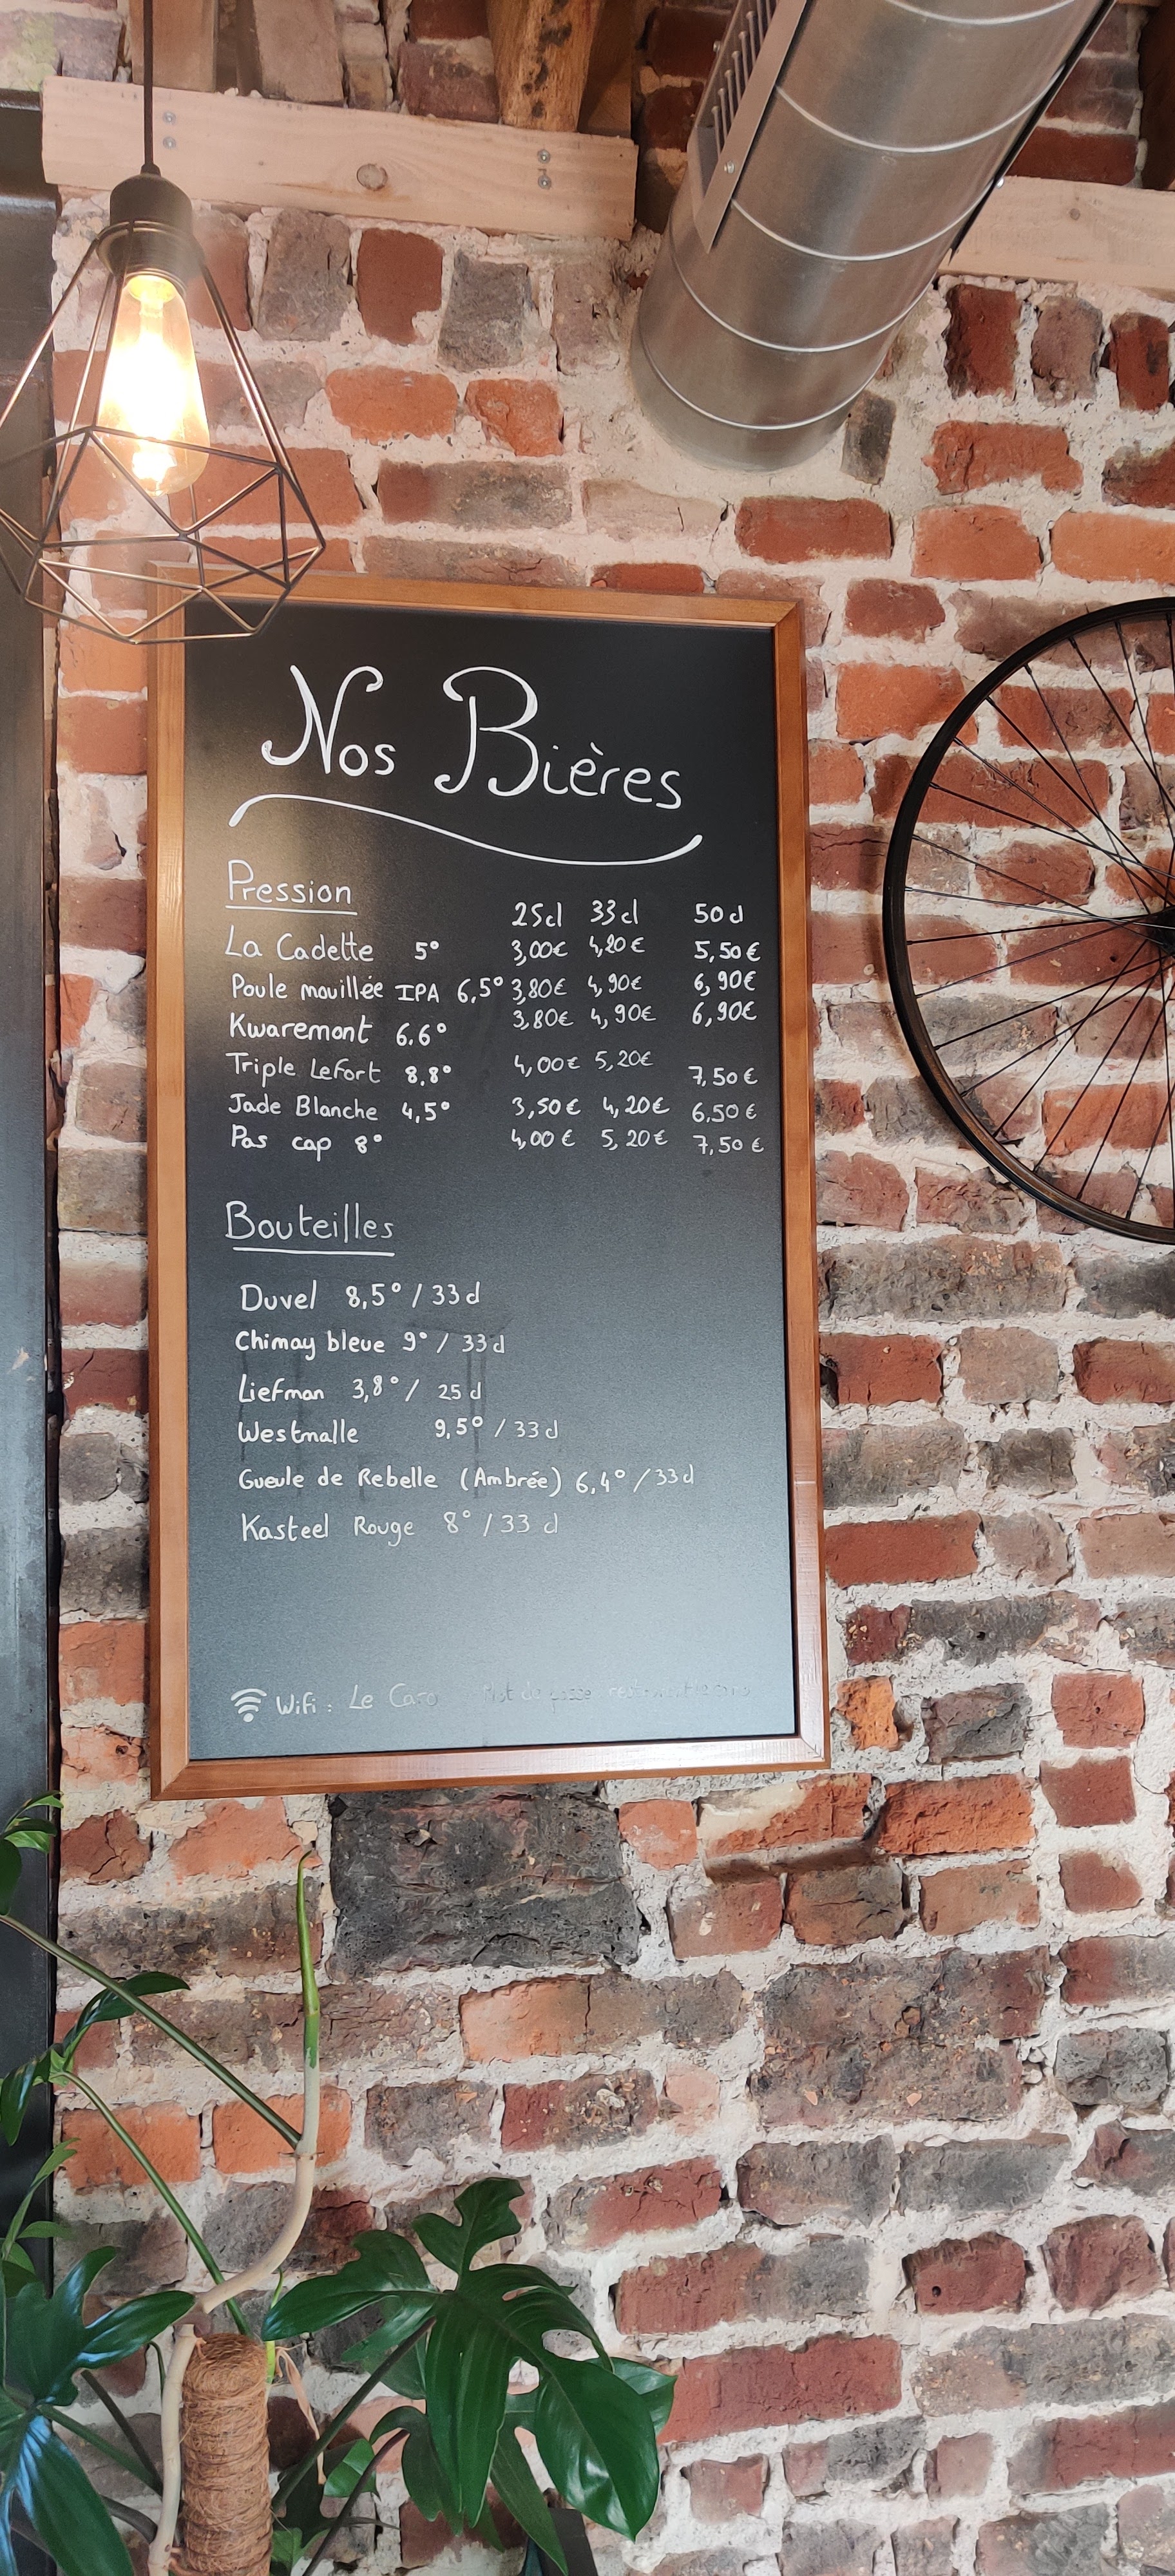 Nos Bières
Pression
25cl 33cl 50cl
La Cadette 5° 3,00€ 4,20€ 5,50€
Poule mouillée IPA 6,5° 3,80€ 4,90€ 6,90€
Kwaremont 6.6° 3,80€ 4,90€ 6,90€
Triple Lefort 8.8° 4,00€ 5,20€ 7,50€
Jade Blanche 4,5° 3,50€ 4,20€ 6.50€
Pas cap 8° 4,00€ 5,20€ 7,50€
Bouteilles
Duvel 8,5° / 33cl
Chimay bleue 9° / 33cl
Liefman 3,8° / 25cl
Westmalle 9,5° / 33cl
Gueule de Rebelle (Ambrée) 6,4° / 33cl
Kasteel Rouge 8° / 33 cl
Wifi : Le Caro Mot de passe